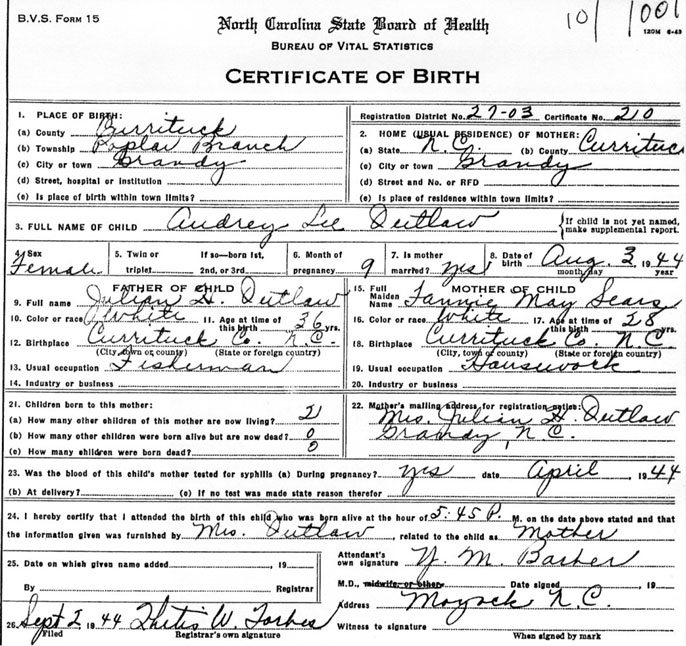 B.V.S. Form 15
North Carolina State Board of Health
10 1001
120M 6-43
Bureau of Vital Statistics
CERTIFICATE OF BIRTH
1. PLACE OF BIRTH:
(a) County Currituck
(b) Township Poplar Branch
(c) City or town Grandy
(d) Street, hospital or institution
(e) Is place of birth within town limits?
Registration District No. 27-03 Certificate No. 210
2. HOME (USUAL RESIDENCE) OF MOTHER:
(a) State N.C. (b) County Currituck
(c) City or town Grandy
(d) Street and No. or RFD
(e) Is place of residence within town limits?
3. FULL NAME OF CHILD Audrey Lee Outlaw
If child is not yet named, make supplemental report.
4. Sex Female
5. Twin or triplet If so—born 1st, 2nd, or 3rd
6. Month of pregnancy 9
7. Is mother married? yes
8. Date of birth Aug. 3 1944
month/day year
FATHER OF CHILD
9. Full name Julian H. Outlaw
10. Color or race White 11. Age at time of this birth 36 yrs.
12. Birthplace Currituck Co. N.C.
(City, town or county) (State or foreign country)
13. Usual occupation Fisherman
14. Industry or business
MOTHER OF CHILD
15. Full Maiden Name Fannie May Sears
16. Color or race White 17. Age at time of this birth 28 yrs.
18. Birthplace Currituck Co. N.C.
(City, town or county) (State or foreign country)
19. Usual occupation Housework
20. Industry or business
21. Children born to this mother:
(a) How many other children of this mother are now living? 2
(b) How many other children were born alive but are now dead? 0
(c) How many children were born dead? 0
22. Mother's mailing address for registration notice:
Mrs. Julian H. Outlaw
Grandy, N.C.
23. Was the blood of this child's mother tested for syphilis (a) During pregnancy? yes date April, 1944
(b) At delivery? (c) If no test was made state reason therefor
24. I hereby certify that I attended the birth of this child who was born alive at the hour of 5:45 P. M. on the date above stated and that
the information given was furnished by Mrs. Outlaw, related to the child as Mother
25. Date on which given name added, 19
By Registrar
Attendant's own signature
M.D., midwife, or other Date signed, 19
Address Moyock N.C.
26. Sept 2, 1944 Thetis W. Forbes
Filed Registrar's own signature
Witness to signature
When signed by mark